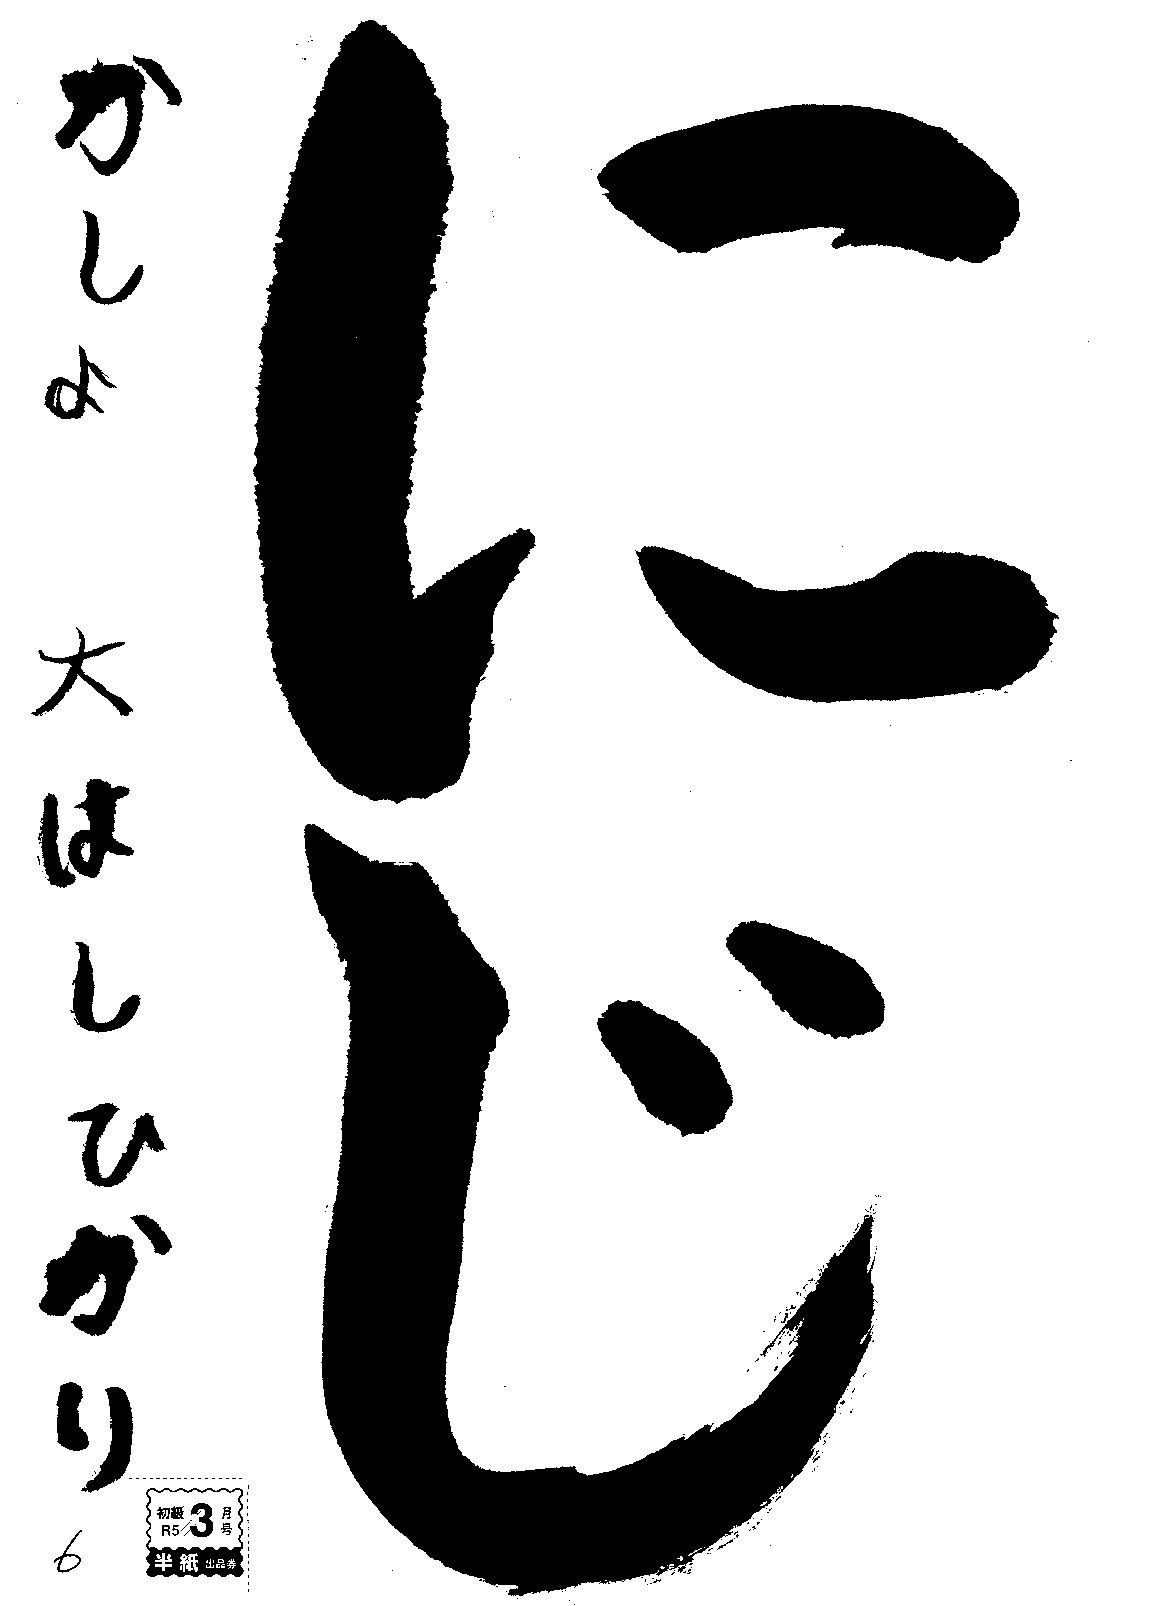 にじ
かしよ 大はしひかり
6
初級
R5/3月号
半紙 出品券